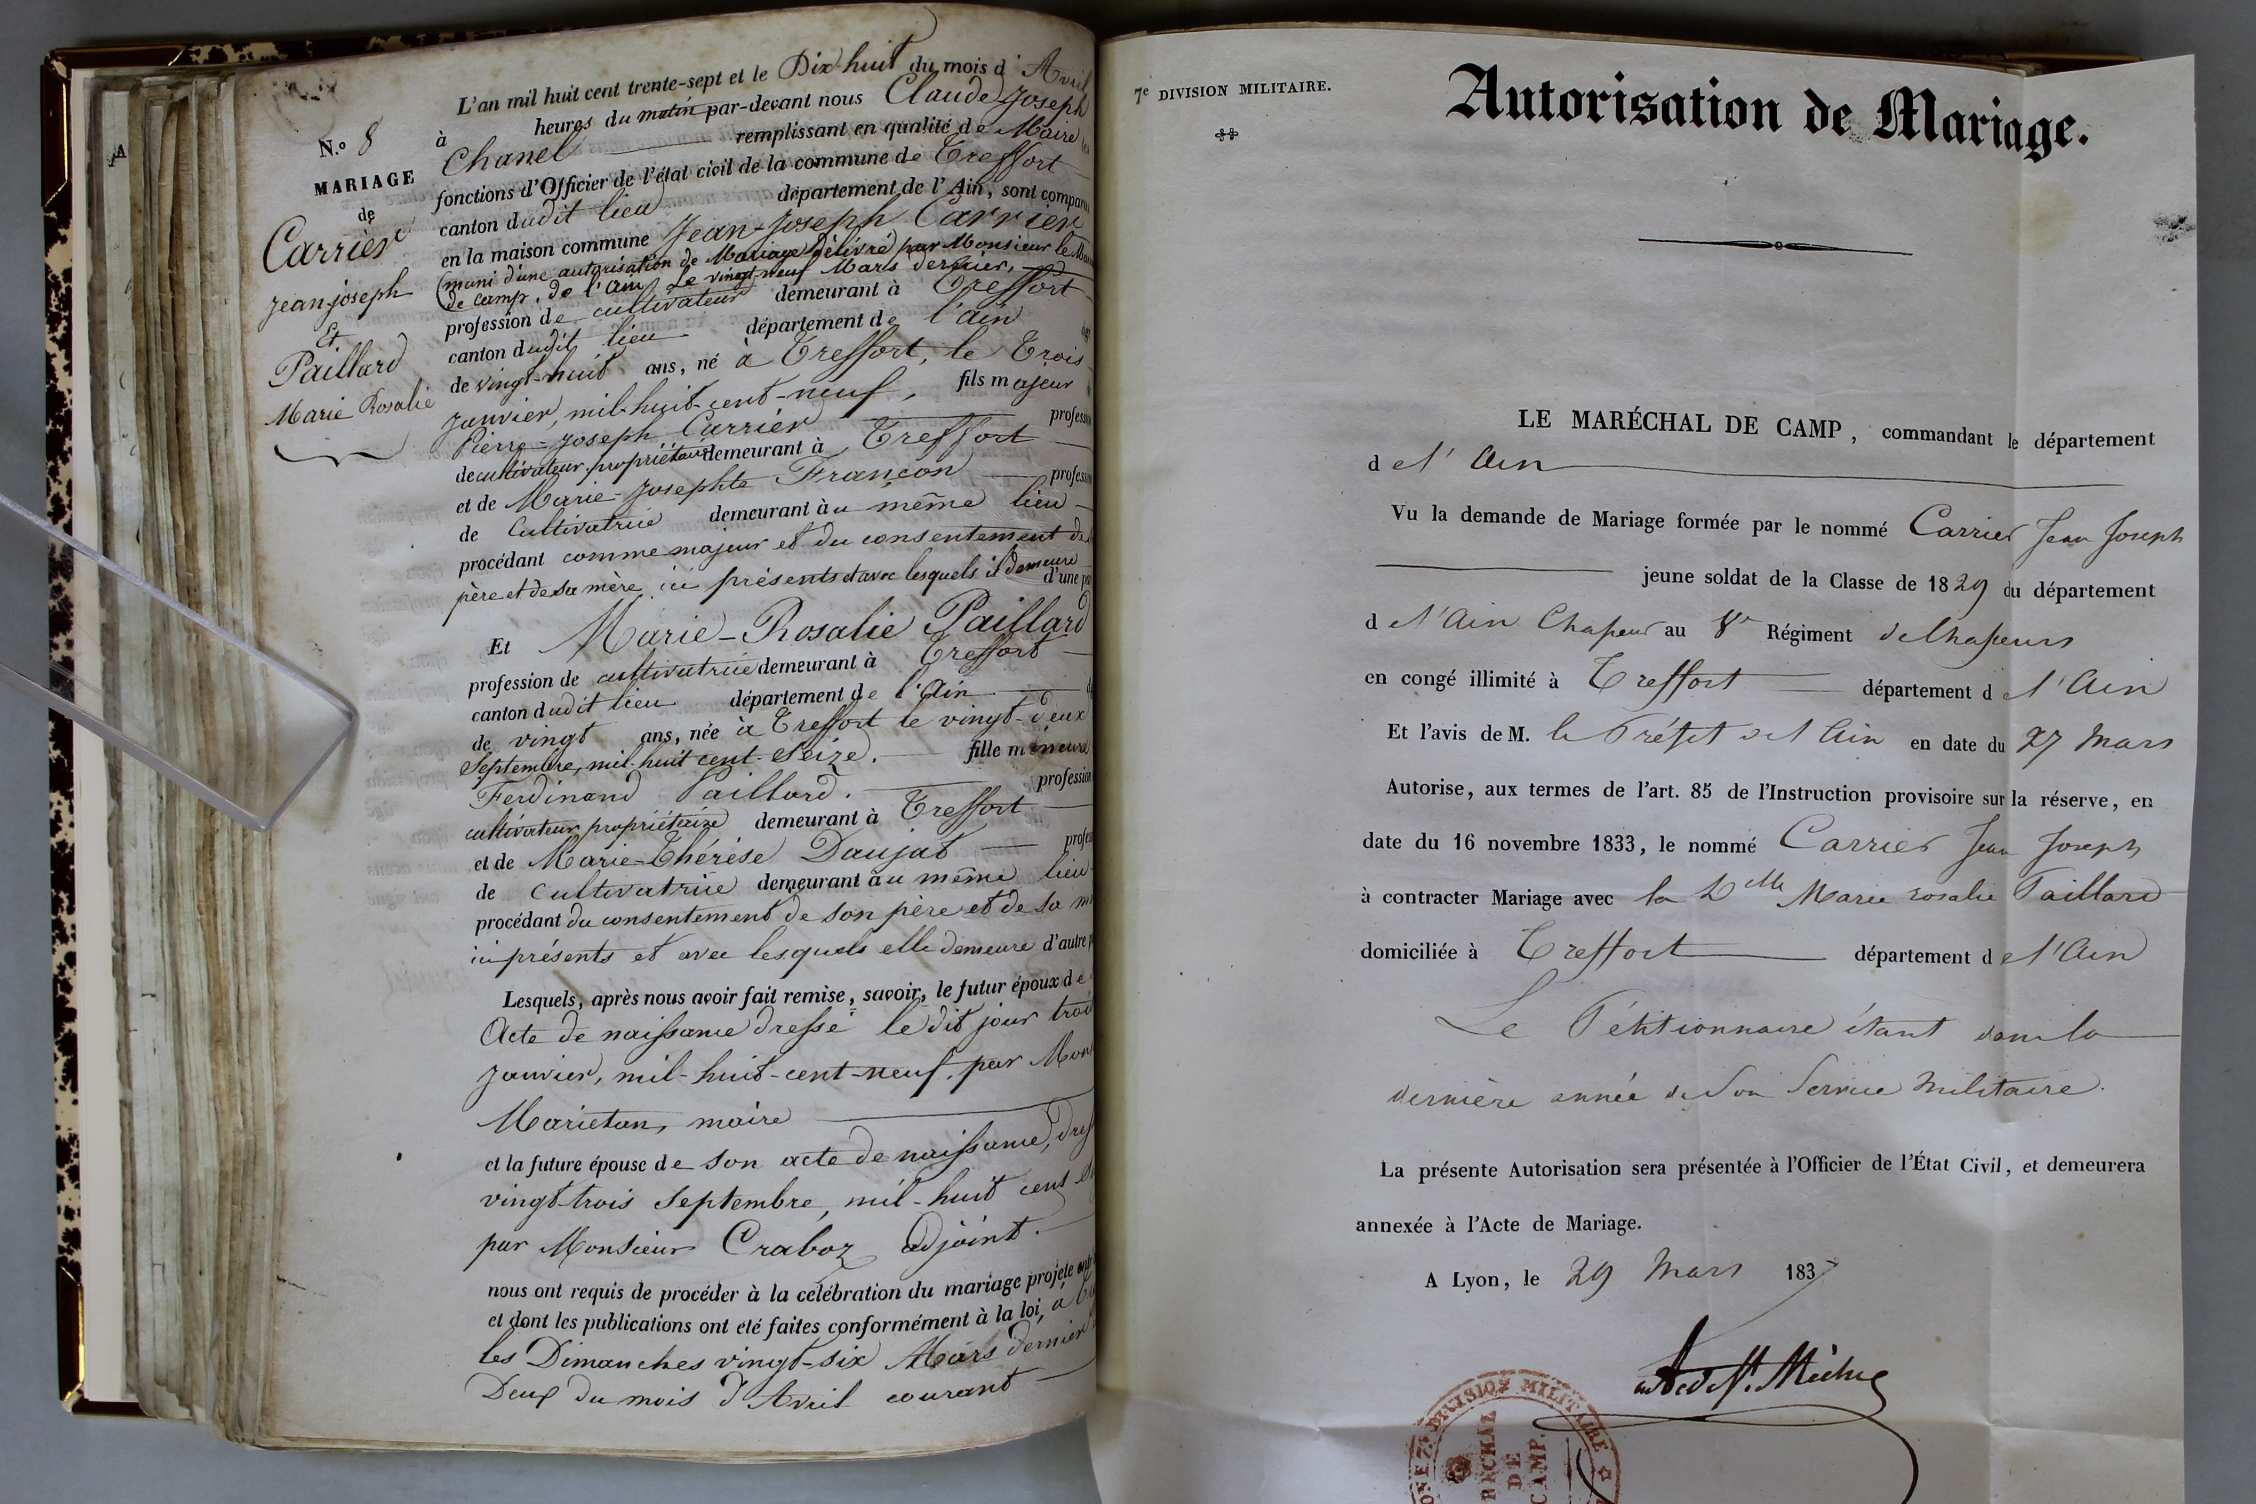 L'an mil huit cent trente-sept et le Dix-huit du mois d'Avril
à heures du matin par-devant nous Claude Joseph
Chanel remplissant en qualité de Maire les
fonctions d'Officier de l'état civil de la commune de Treffort
canton dudit lieu département de l'Ain, sont comparus
en la maison commune Jean-Joseph Carrier
(muni d'une autorisation de Mariage délivré par Monsieur le Mar
de camp, de l'ain, Le vingt-neuf Mars dernier,
profession de cultivateur demeurant à Treffort
canton dudit lieu département de l'ain
de vingt-huit ans, né à Treffort, le Trois
janvier, mil-huit-cent-neuf, fils majeur
Pierre-Joseph Carrier profession
de cultivateur propriétaire demeurant à Treffort
et de Marie-Josephte Françon profession
de Cultivatrice demeurant au même lieu
procédant comme majeur et du consentement de
père et de sa mère ici présents et avec lesquels il demeure d'une pa
Et Marie-Rosalie Paillard
profession de cultivatrice demeurant à Treffort
canton dudit lieu département de l'Ain
de vingt ans, née à Treffort le vingt-deux
Septembre, mil-huit cent-seize. fille mineure
Ferdinand Paillard. profession
cultivateur propriétaire demeurant à Treffort
et de Marie-Thérèse Daujat profes
de cultivatrice demeurant au même lieu
procédant du consentement de son père et de sa m
ici présents et avec lesquels elle demeure d'autre p
Lesquels, après nous avoir fait remise, savoir, le futur époux de
Acte de naissance dressé le dit jour trois
janvier, mil-huit-cent-neuf, par Mons
Marietan, maire
et la future épouse de son acte de naissance, dres
vingt-trois Septembre, mil-huit cent
par Monsieur Craboz adjoint.
nous ont requis de procéder à la célébration du mariage projeté entr
et dont les publications ont été faites conformément à la loi, à
les Dimanches vingt-six Mars dernier
Deux du mois d'Avril courant
N.º 8
MARIAGE
de
Carrier
jean-joseph
Et
Paillard
Marie Rosalie
7e DIVISION MILITAIRE.
Autorisation de Mariage.
LE MARÉCHAL DE CAMP, commandant le département
de l'Ain
Vu la demande de Mariage formée par le nommé Carrier Jean Joseph
jeune soldat de la Classe de 1829 du département
de l'Ain Chasseur au 8e Régiment de Chasseurs
en congé illimité à Treffort département de l'Ain
Et l'avis de M. le Préfet de l'Ain en date du 27 Mars
Autorise, aux termes de l'art. 85 de l'Instruction provisoire sur la réserve, en
date du 16 novembre 1833, le nommé Carrier Jean Joseph
à contracter Mariage avec la Dlle Marie rosalie Paillard
domiciliée à Treffort département de l'Ain
Le Pétitionnaire étant dans la
dernière année de son Service Militaire.
La présente Autorisation sera présentée à l'Officier de l'État Civil, et demeurera
annexée à l'Acte de Mariage.
A Lyon, le 29 Mars 1837
DIVISION MILITAIRE
DE
CAMP.